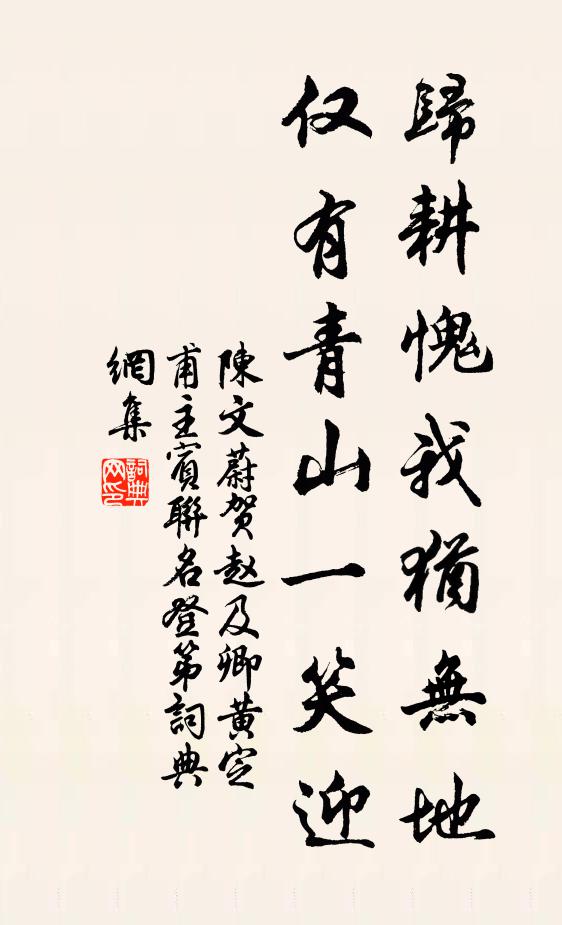 歸耕愧我猶無地
仅有青山一笑迎
陳文蔚贺赵及卿黄定
甫主賓聯名登第詞典
網集
詞典
网印